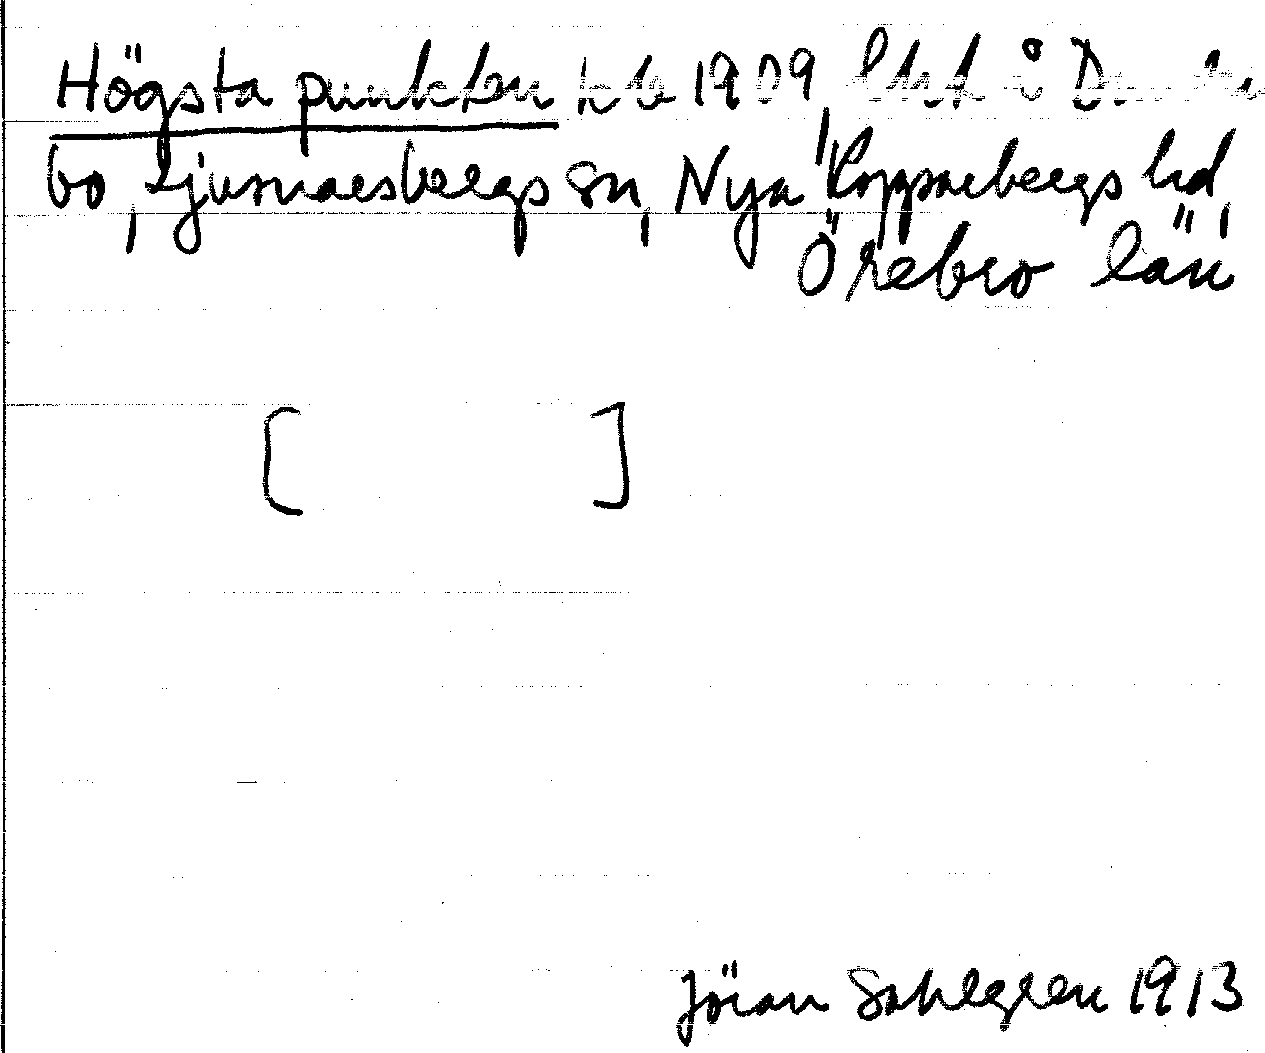 Högsta punkten 1909,
bo, Ljusnarsbergs sn, Nya Kopparbergs hd,
Örebro län
[ ]
Jöran Sahlgren 1913